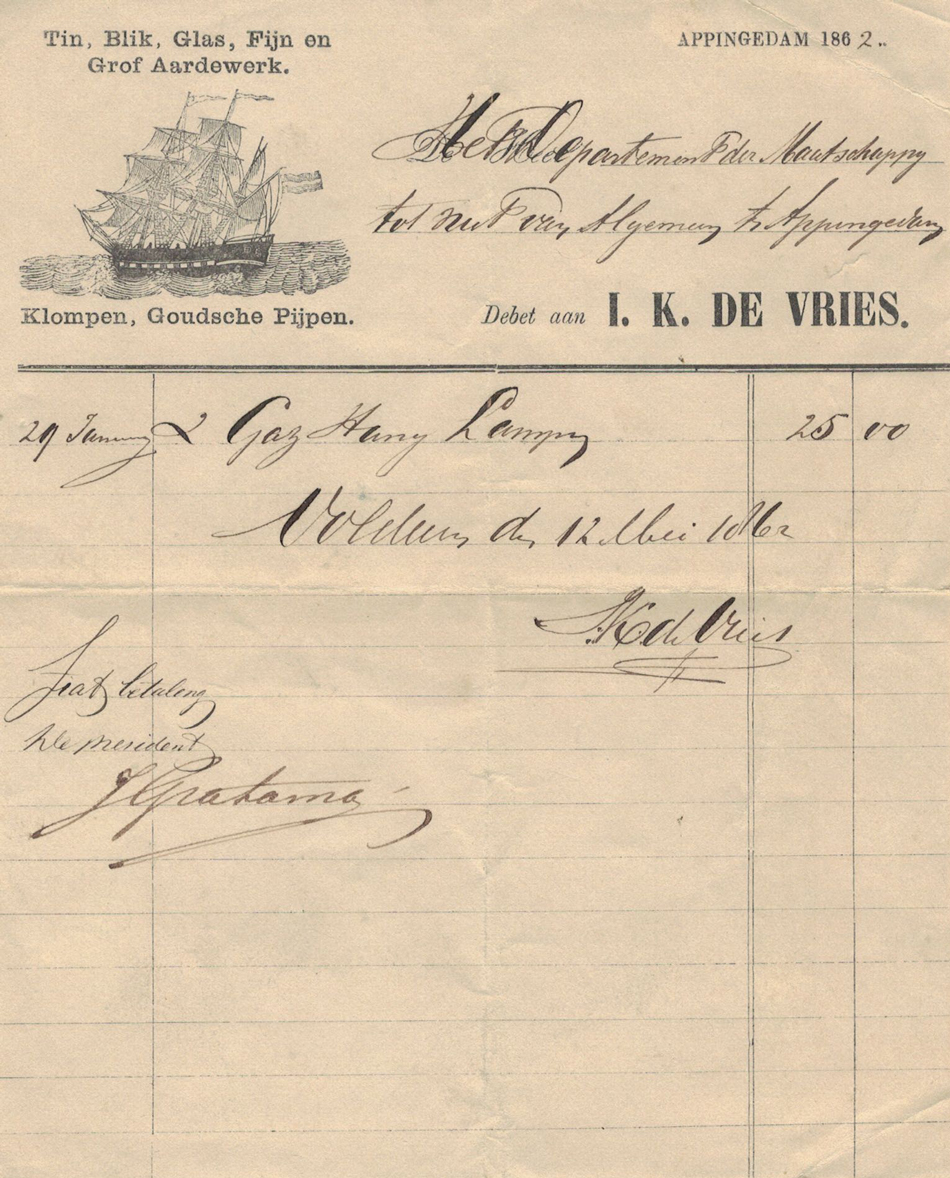 Tin, Blik, Glas, Fijn en
Grof Aardewerk.
APPINGEDAM 1862..
Het Departement der Maatschappy
tot nut van Algemeen te Appingedam
Klompen, Goudsche Pijpen.
Debet aan I. K. DE VRIES.
29 January 2 Gaz Hang Lampen 25 00
Voldaan den 12 Mei 1862
IK de Vries
Fiat betaling
De president
J Gratama